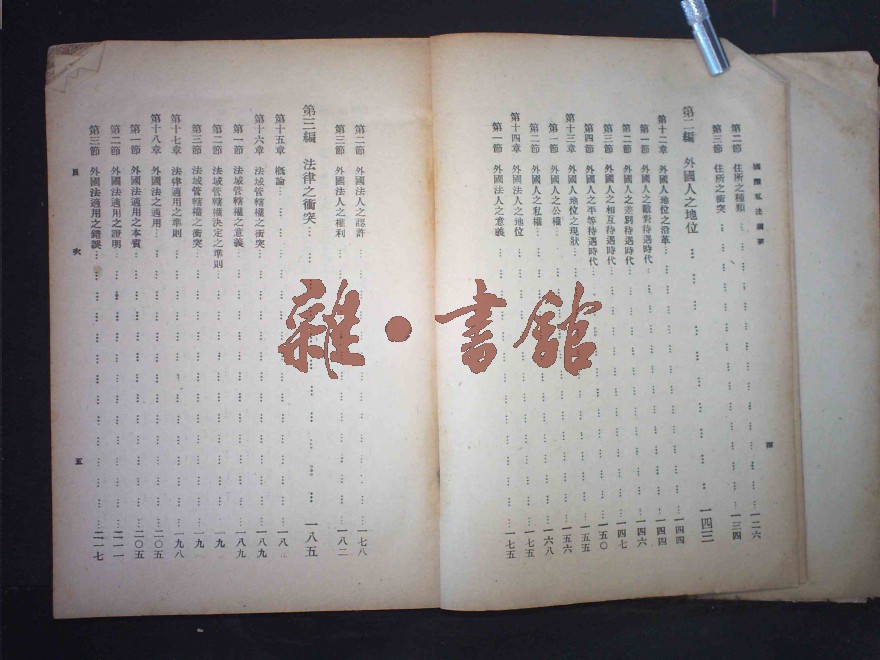 國際私法綱要
四
第二節 住所之種類…一二六
第三節 住所之衝突…一三四
第二編 外國人之地位…一四三
第十二章 外國人地位之沿革…一四四
第一節 外國人之敵對待遇時代…一四四
第二節 外國人之差別待遇時代…一四六
第三節 外國人之相互待遇時代…一四七
第四節 外國人之平等待遇時代…一五〇
第十三章 外國人地位之現狀…一五五
第一節 外國人之公權…一五六
第二節 外國人之私權…一六八
第十四章 外國法人之地位…一七五
第一節 外國法人之意義…一七五
第二節 外國法人之認許…一七八
第三節 外國法人之權利…一八二
第三編 法律之衝突…一八五
第十五章 概論…一八
第十六章 法域管轄權之衝突…一八九
第一節 法域管轄權之意義…一八九
第二節 法域管轄權決定之準則…一九
第三節 法域管轄權之衝突…一九
第十七章 法律適用之準則…一九八
第十八章 外國法之適用…二〇五
第一節 外國法適用之本質…二〇五
第二節 外國法適用之證明…二一一
第三節 外國法適用之錯誤…二一七
目次
五
雜·書館